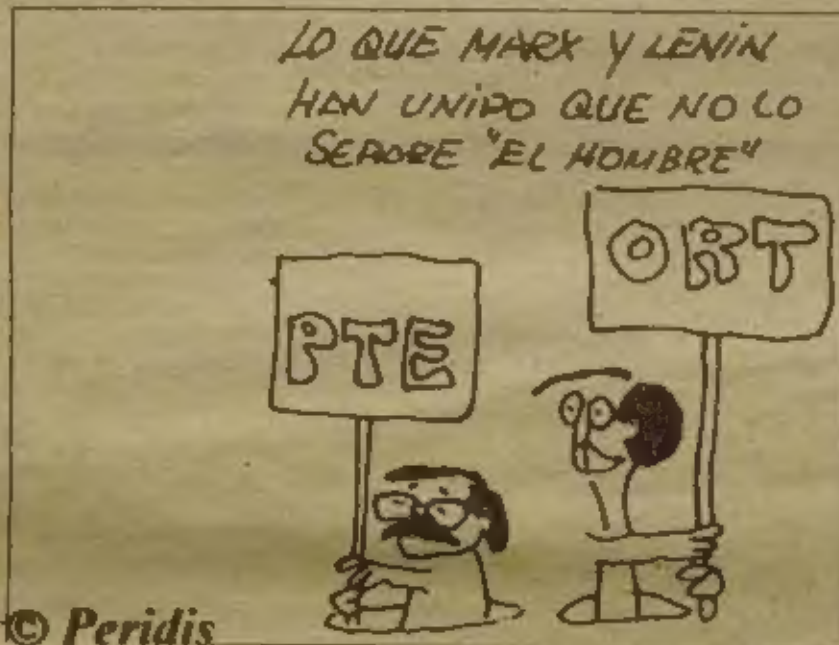 LO QUE MARX Y LENIN
HAN UNIDO QUE NO LO
SEPARE "EL HOMBRE"
PTE
ORT
© Peridis